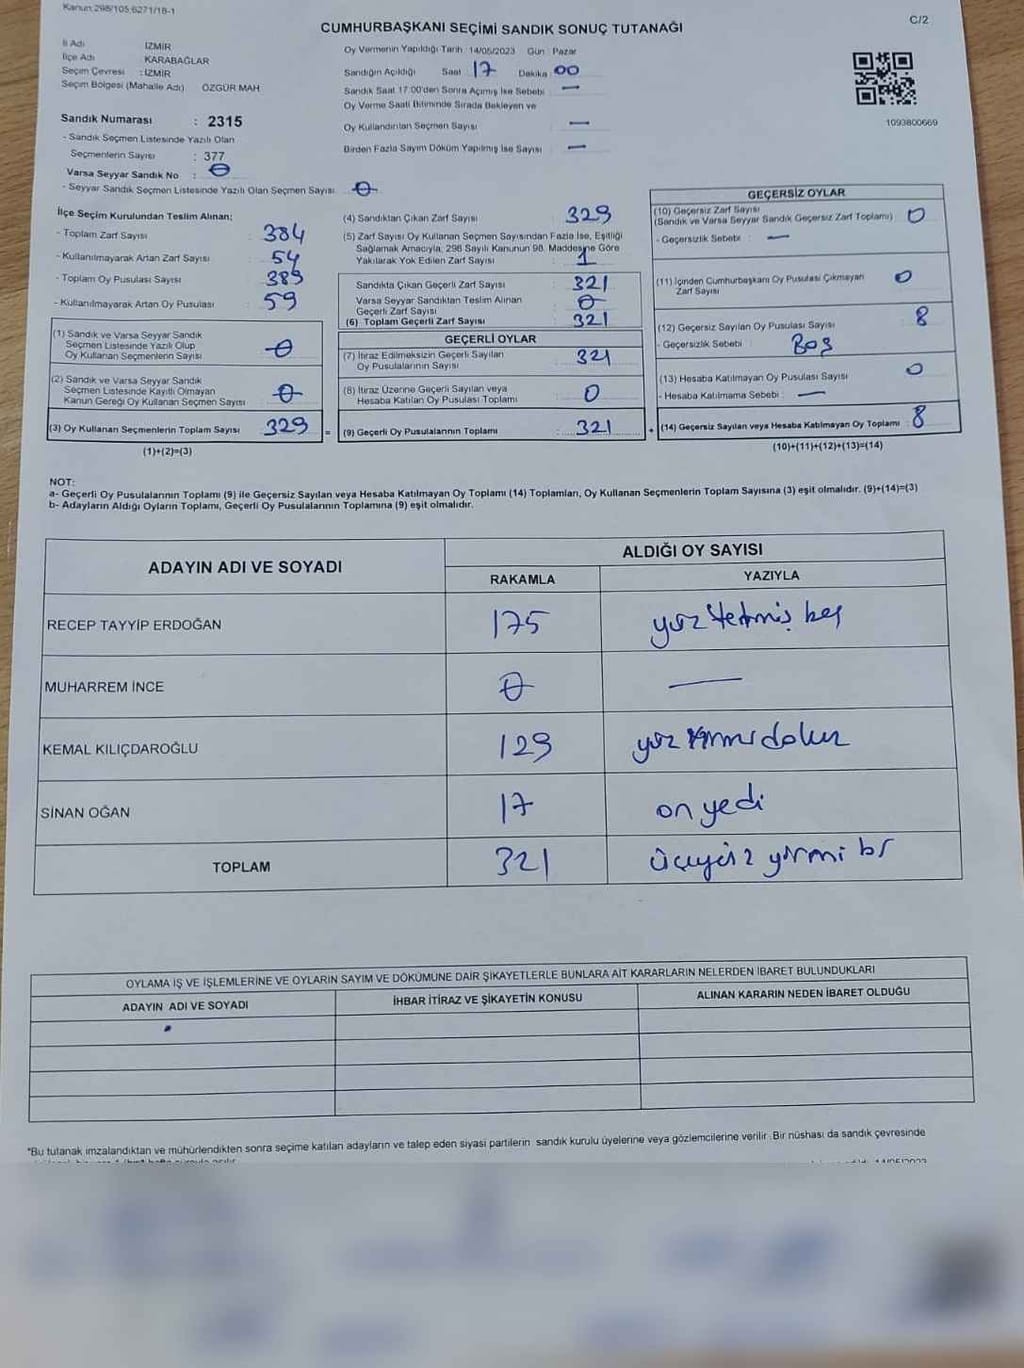 Kanun:298/105;6271/18-1
C/2
CUMHURBAŞKANI SEÇİMİ SANDIK SONUÇ TUTANAĞI
İl Adı İZMİR
İlçe Adı KARABAĞLAR
Seçim Çevresi : İZMİR
Seçim Bölgesi (Mahalle Adı) ÖZGÜR MAH
Oy Vermenin Yapıldığı Tarih : 14/05/2023 Gün : Pazar
Sandığın Açıldığı Saat 17 Dakika 00
Sandık Saat 17:00'den Sonra Açımış İse Sebebi —
Oy Verme Saati Bitiminde Sırada Bekleyen ve
Oy Kullandırılan Seçmen Sayısı —
Birden Fazla Sayım Döküm Yapılmış İse Sayısı —
1093800669
Sandık Numarası : 2315
- Sandık Seçmen Listesinde Yazılı Olan
Seçmenlerin Sayısı : 377
Varsa Seyyar Sandık No : 0
- Seyyar Sandık Seçmen Listesinde Yazılı Olan Seçmen Sayısı 0
İlçe Seçim Kurulundan Teslim Alınan;
- Toplam Zarf Sayısı : 384
- Kullanılmayarak Artan Zarf Sayısı : 54
- Toplam Oy Pusulası Sayısı : 389
- Kullanılmayarak Artan Oy Pusulası : 59
(1) Sandık ve Varsa Seyyar Sandık
Seçmen Listesinde Yazılı Olup
Oy Kullanan Seçmenlerin Sayısı : 0
(2) Sandık ve Varsa Seyyar Sandık
Seçmen Listesinde Kayıtlı Olmayan
Kanun Gereği Oy Kullanan Seçmen Sayısı : 0
(3) Oy Kullanan Seçmenlerin Toplam Sayısı 329
(1)+(2)=(3)
(4) Sandıktan Çıkan Zarf Sayısı : 329
(5) Zarf Sayısı Oy Kullanan Seçmen Sayısından Fazla İse, Eşitliği
Sağlamak Amacıyla, 298 Sayılı Kanunun 98. Maddesine Göre
Yakılarak Yok Edilen Zarf Sayısı : 1
Sandıkta Çıkan Geçerli Zarf Sayısı : 321
Varsa Seyyar Sandıktan Teslim Alınan
Geçerli Zarf Sayısı : 0
(6) Toplam Geçerli Zarf Sayısı : 321
GEÇERLİ OYLAR
(7) İtiraz Edilmeksizin Geçerli Sayılan
Oy Pusulasının Sayısı : 321
(8) İtiraz Üzerine Geçerli Sayılan veya
Hesaba Katılan Oy Pusulası Toplamı : 0
= (9) Geçerli Oy Pusulalarının Toplamı : 321
GEÇERSİZ OYLAR
(10) Geçersiz Zarf Sayısı
(Sandık ve Varsa Seyyar Sandık Geçersiz Zarf Toplamı) 0
- Geçersizlik Sebebi : —
(11) İçinden Cumhurbaşkanı Oy Pusulası Çıkmayan
Zarf Sayısı 0
(12) Geçersiz Sayılan Oy Pusulası Sayısı : 8
- Geçersizlik Sebebi : Boş
(13) Hesaba Katılmayan Oy Pusulası Sayısı : 0
- Hesaba Katılmama Sebebi : —
+ (14) Geçersiz Sayılan veya Hesaba Katılmayan Oy Toplamı : 8
(10)+(11)+(12)+(13)=(14)
NOT:
a- Geçerli Oy Pusulalarının Toplamı (9) ile Geçersiz Sayılan veya Hesaba Katılmayan Oy Toplamı (14) Toplamları, Oy Kullanan Seçmenlerin Toplam Sayısına (3) eşit olmalıdır. (9)+(14)=(3)
b- Adayların Aldığı Oyların Toplamı, Geçerli Oy Pusulalarının Toplamına (9) eşit olmalıdır.
ADAYIN ADI VE SOYADI ALDIĞI OY SAYISI
RAKAMLA YAZIYLA
RECEP TAYYİP ERDOĞAN 175 yüz yetmiş beş
MUHARREM İNCE 0 —
KEMAL KILIÇDAROĞLU 129 yüz yirmi dokuz
SİNAN OĞAN 17 on yedi
TOPLAM 321 üçyüz yirmi bir
OYLAMA İŞ VE İŞLEMLERİNE VE OYLARIN SAYIM VE DÖKÜMÜNE DAİR ŞİKAYETLERLE BUNLARA AİT KARARLARIN NELERDEN İBARET BULUNDUKLARI
ADAYIN ADI VE SOYADI İHBAR İTİRAZ VE ŞİKAYETİN KONUSU ALINAN KARARIN NEDEN İBARET OLDUĞU
*Bu tutanak imzalandıktan ve mühürlendikten sonra seçime katılan adayların ve talep eden siyasi partilerin sandık kurulu üyelerine veya gözlemcilerine verilir. Bir nüshası da sandık çevresinde